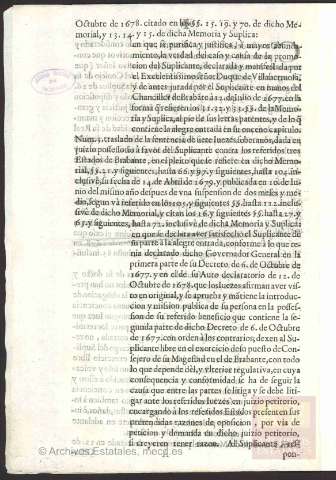 Octubre de 1678. citado en los §§. 15. 19. y 70. de dicho Me-
morial, y 13. 14. y 15. de dicha Memoria y Suplica:
en que se purifica, y justifica, à mayor
miento, la verdad del caso y causa de la promo-
cion del Suplicante, declarada y manifestada por
el Excelentissimo señor Duque de Villahermosa,
y de antes jurada por el Suplicante en manos del
Chanciller de Brabante à 13. de Julio de 2677. en la
forma que refieren los §§. 31. 32. y 33. de la Memo-
ria y Suplica, al pie de sus letras patentes, y de lo q̃
contiene la alegre entrada en su onceno capitulo.
Num. 3. traslado de la sentencia de siete Iuezes sobornados, dada en
juizio possessorio à favor del Suplicante contra los referidos tres
Estados de Brabante, en el pleito que se refiere en dicho Memo-
rial, §§. 21. y siguientes, hasta 66. y 97. y siguientes, hasta 104. in-
clusivè, su fecha de 14. de Abril de 1679. y publicada en 10. de Iu-
nio del mismo año despues de una suspension de dos meses y me-
dio, segun và referido en los 105. y siguientes §§. hasta 112. inclu-
sivè de dicho Memorial, y citan los 16. y siguientes §§. hasta 27. y
61. y siguientes, hasta 72. inclusivè de dicha Memoria y Suplica:
en que se declara aver satisfecho el Suplicante de
su parte à la alegre entrada, conforme à lo que te-
nia declarado dicho Governador General en la
primera parte de su Decreto de 6. de Octubre de
1677. y en el de su Auto declaratorio de 12. de
Octubre de 1678. que los Iuezes afirman aver vis-
to en original, y se aprueba y mantiene la introduc-
cion y mission publica de su persona en la posses-
sion de su referido beneficio que contiene la se-
gunda parte de dicho Decreto de 6. de Octubre
de 1677. con orden à los contrarios, dexen al Su-
plicante libre en el exercicio de su puesto de Con-
sejero de su Magestad en el de Brabante, con todo
lo que depende dèl, y ulterior regulativa, en cuya
consequencia y conformidad se ha de seguir la
causa que entre las partes se litiga y se debe liti-
gar ante los referidos Iuezes en juizio petitorio,
encargando à los referidos Estados presenten sus
pretendidas razones de oposicion, por via de
peticion y demanda en dicho juizio petitorio,
si creyeren tener razon. Al Suplicante, res-
pon-
© Archivos Estatales, mecd.es